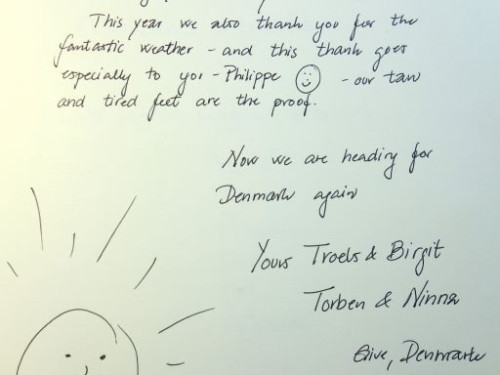 This year we also thank you for the
fantastic weather - and this thank goes
especially to you - Philippe ☺ - our tan
and tired feet are the proof.
Now we are heading for
Denmark again
Yours Troels & Birgit
Torben & Ninna
Give, Denmark